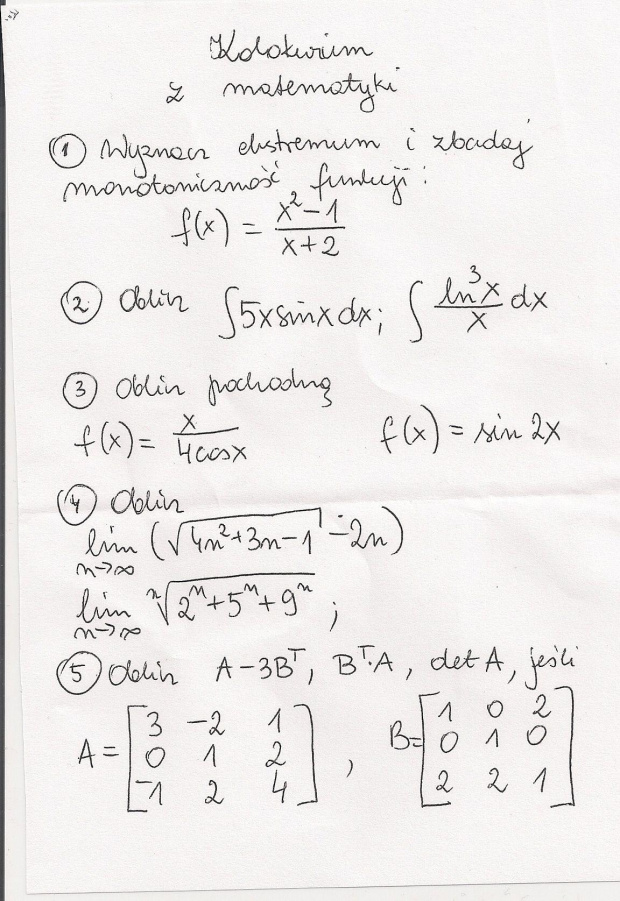 Kolokwium
z matematyki
① Wyznacz ekstremum i zbadaj
monotoniczność funkcji:
f(x) = (x² - 1)/(x + 2)
② Oblicz ∫5x sinx dx; ∫ (ln³x)/x dx
③ Oblicz pochodną
f(x) = x/(4cosx)    f(x) = sin 2x
④ Oblicz
lim n→∞ (√(4n²+3n-1) - 2n)
lim n→∞ ⁿ√(2ⁿ+5ⁿ+9ⁿ) ;
⑤ Oblicz A-3Bᵀ, Bᵀ·A, det A, jeśli
A = [3 -2 1; 0 1 2; -1 2 4], B = [1 0 2; 0 1 0; 2 2 1]